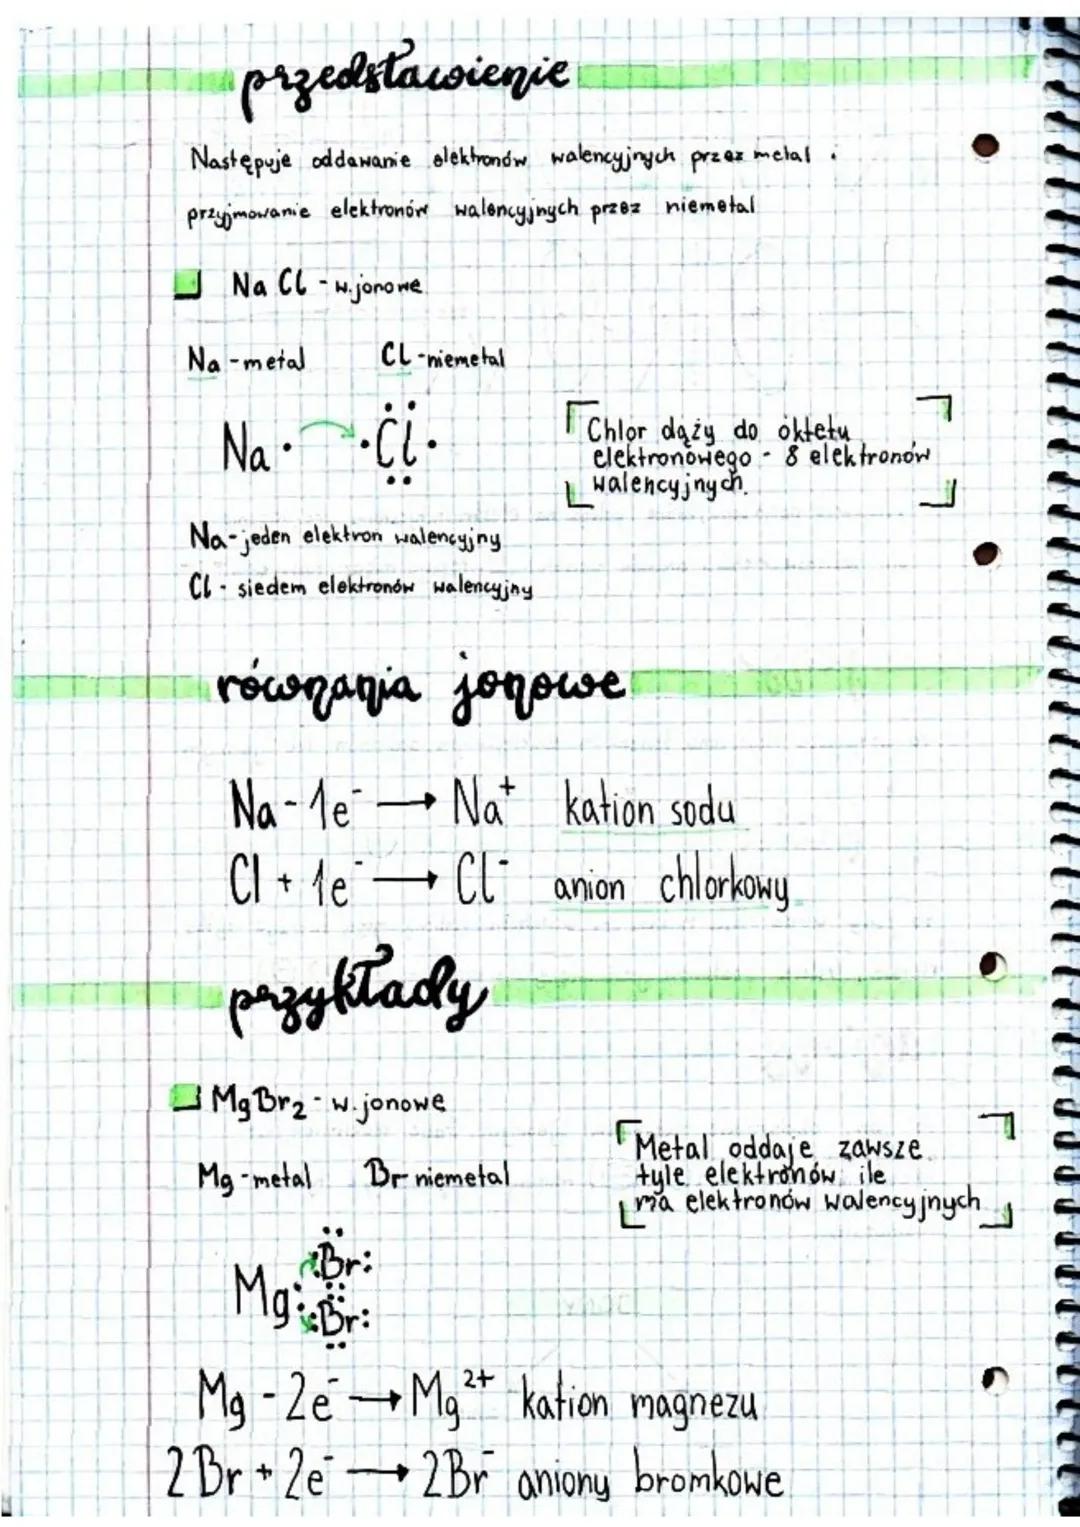 przedstawienie
Następuje oddawanie elektronów walencyjnych przez metal i
przyjmowanie elektronów walencyjnych przez niemetal
NaCl - w.jonowe
Na - metal Cl - niemetal
Na· ·Cl·
Chlor dąży do oktetu
elektronowego - 8 elektronów
walencyjnych.
Na - jeden elektron walencyjny
Cl - siedem elektronów walencyjny
równania jonowe
Na - 1e⁻ → Na⁺ kation sodu
Cl + 1e⁻ → Cl⁻ anion chlorkowy
przykłady
MgBr₂ - w.jonowe
Mg - metal Br - niemetal
Metal oddaje zawsze
tyle elektronów ile
ma elektronów walencyjnych
:Br:
Mg:
:Br:
Mg - 2e⁻ → Mg²⁺ kation magnezu
2Br + 2e⁻ → 2Br⁻ aniony bromkowe